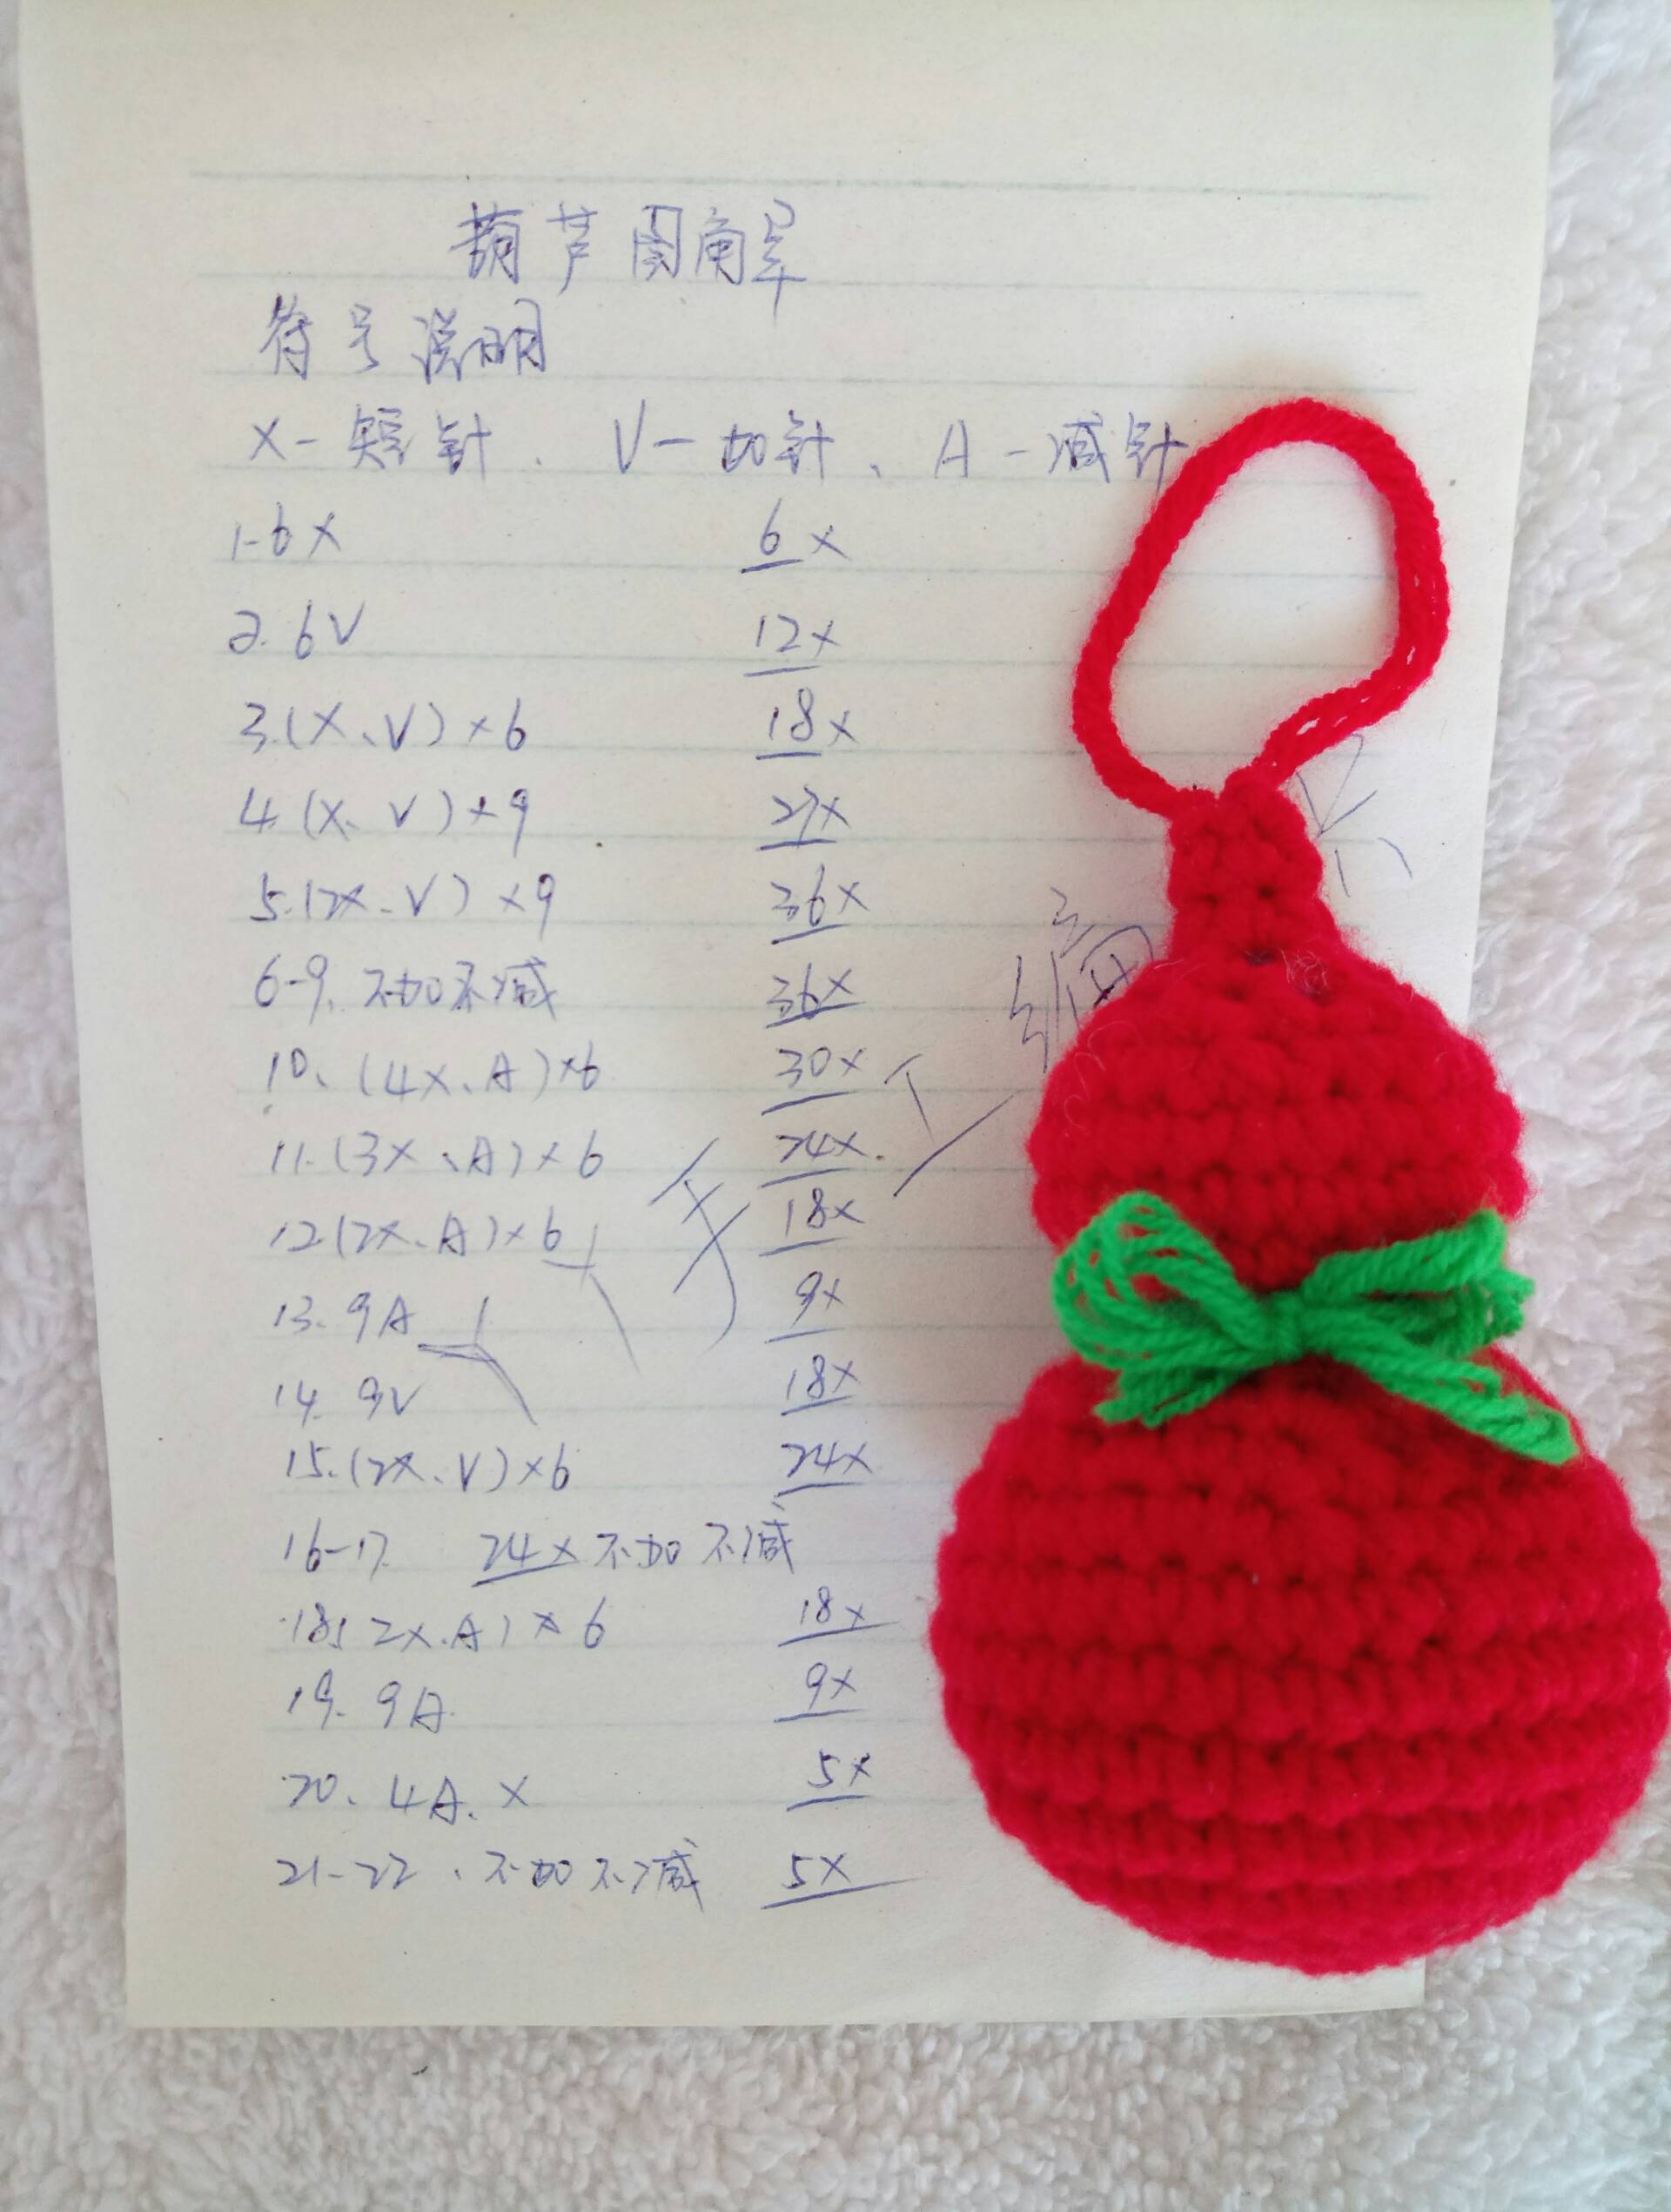 葫芦图解
符号说明
X-短针、V-加针、A-减针
1-6X 6X
2. 6V 12X
3.(X、V)×6 18X
4.(X、V)×9 27X
5.(2X、V)×9 36X
6-9、不加不减 36X
10、(4X、A)×6 30X
11.(3X、A)×6 24X
12.(2X、A)×6 18X
13. 9A 9X
14. 9V 18X
15.(2X、V)×6 24X
16-17. 24X不加不减
18.(2X.A)×6 18X
19. 9A 9X
20、4A、X 5X
21-22、不加不减 5X
手工编